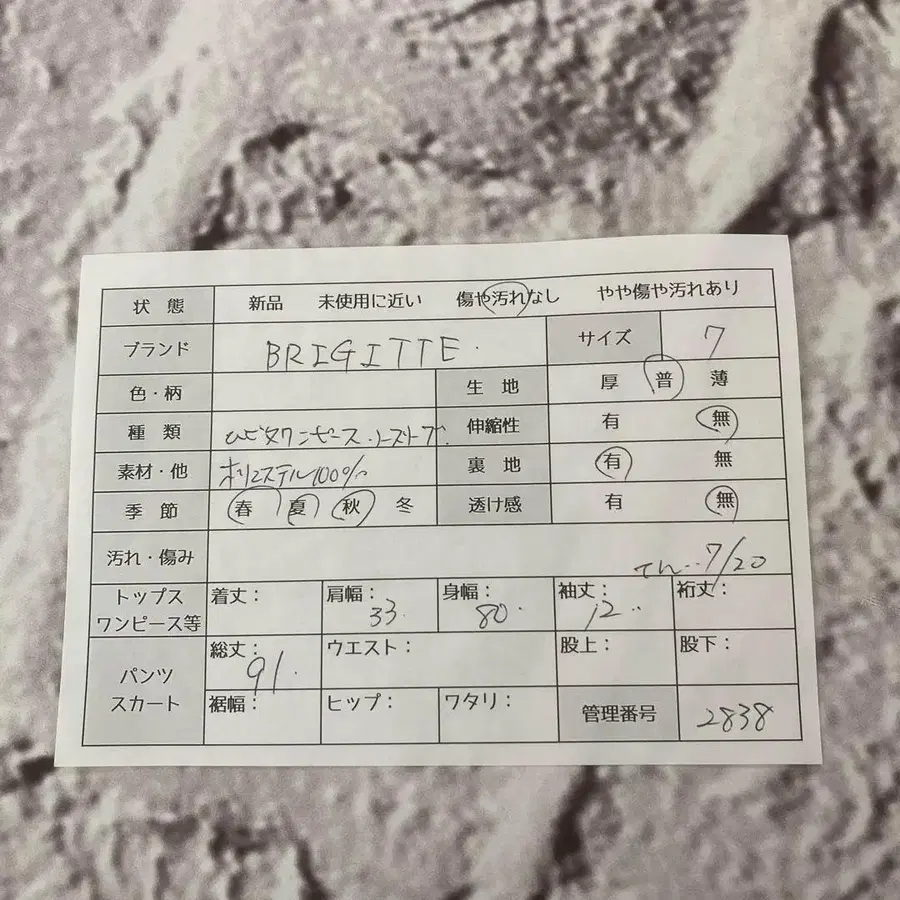 状 態 新品 未使用に近い 傷や汚れなし やや傷や汚れあり
ブランド BRIGITTE. サイズ 7
色・柄 生 地 厚 普 薄
種 類 ひざ丈ワンピース. 伸縮性 有 無
素材・他 ポリエステル100% 裏 地 有 無
季 節 春 夏 秋 冬 透け感 有 無
汚れ・傷み 7/20
トップス ワンピース等 着丈: 肩幅: 33. 身幅: 80. 袖丈: 12.. 裄丈:
パンツ スカート 総丈: 91. ウエスト: 股上: 股下:
裾幅: ヒップ: ワタリ: 管理番号 2838